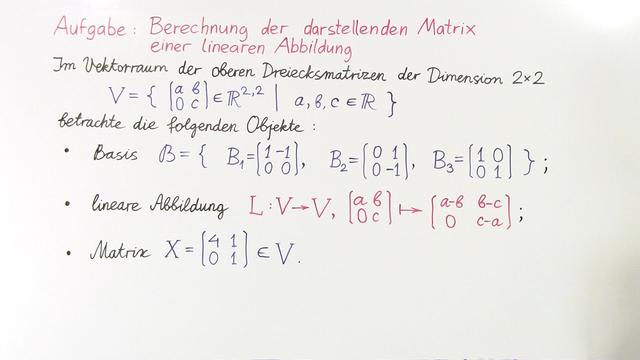 Aufgabe: Berechnung der darstellenden Matrix
einer linearen Abbildung
Im Vektorraum der oberen Dreiecksmatrizen der Dimension 2×2
V = { [a b; 0 c] ∈ ℝ^{2,2} | a, b, c ∈ ℝ }
betrachte die folgenden Objekte:
• Basis B = { B₁ = [1 -1; 0 0], B₂ = [0 1; 0 -1], B₃ = [1 0; 0 1] } ;
• lineare Abbildung L: V → V, [a b; 0 c] ↦ [a-b b-c; 0 c-a] ;
• Matrix X = [4 1; 0 1] ∈ V.